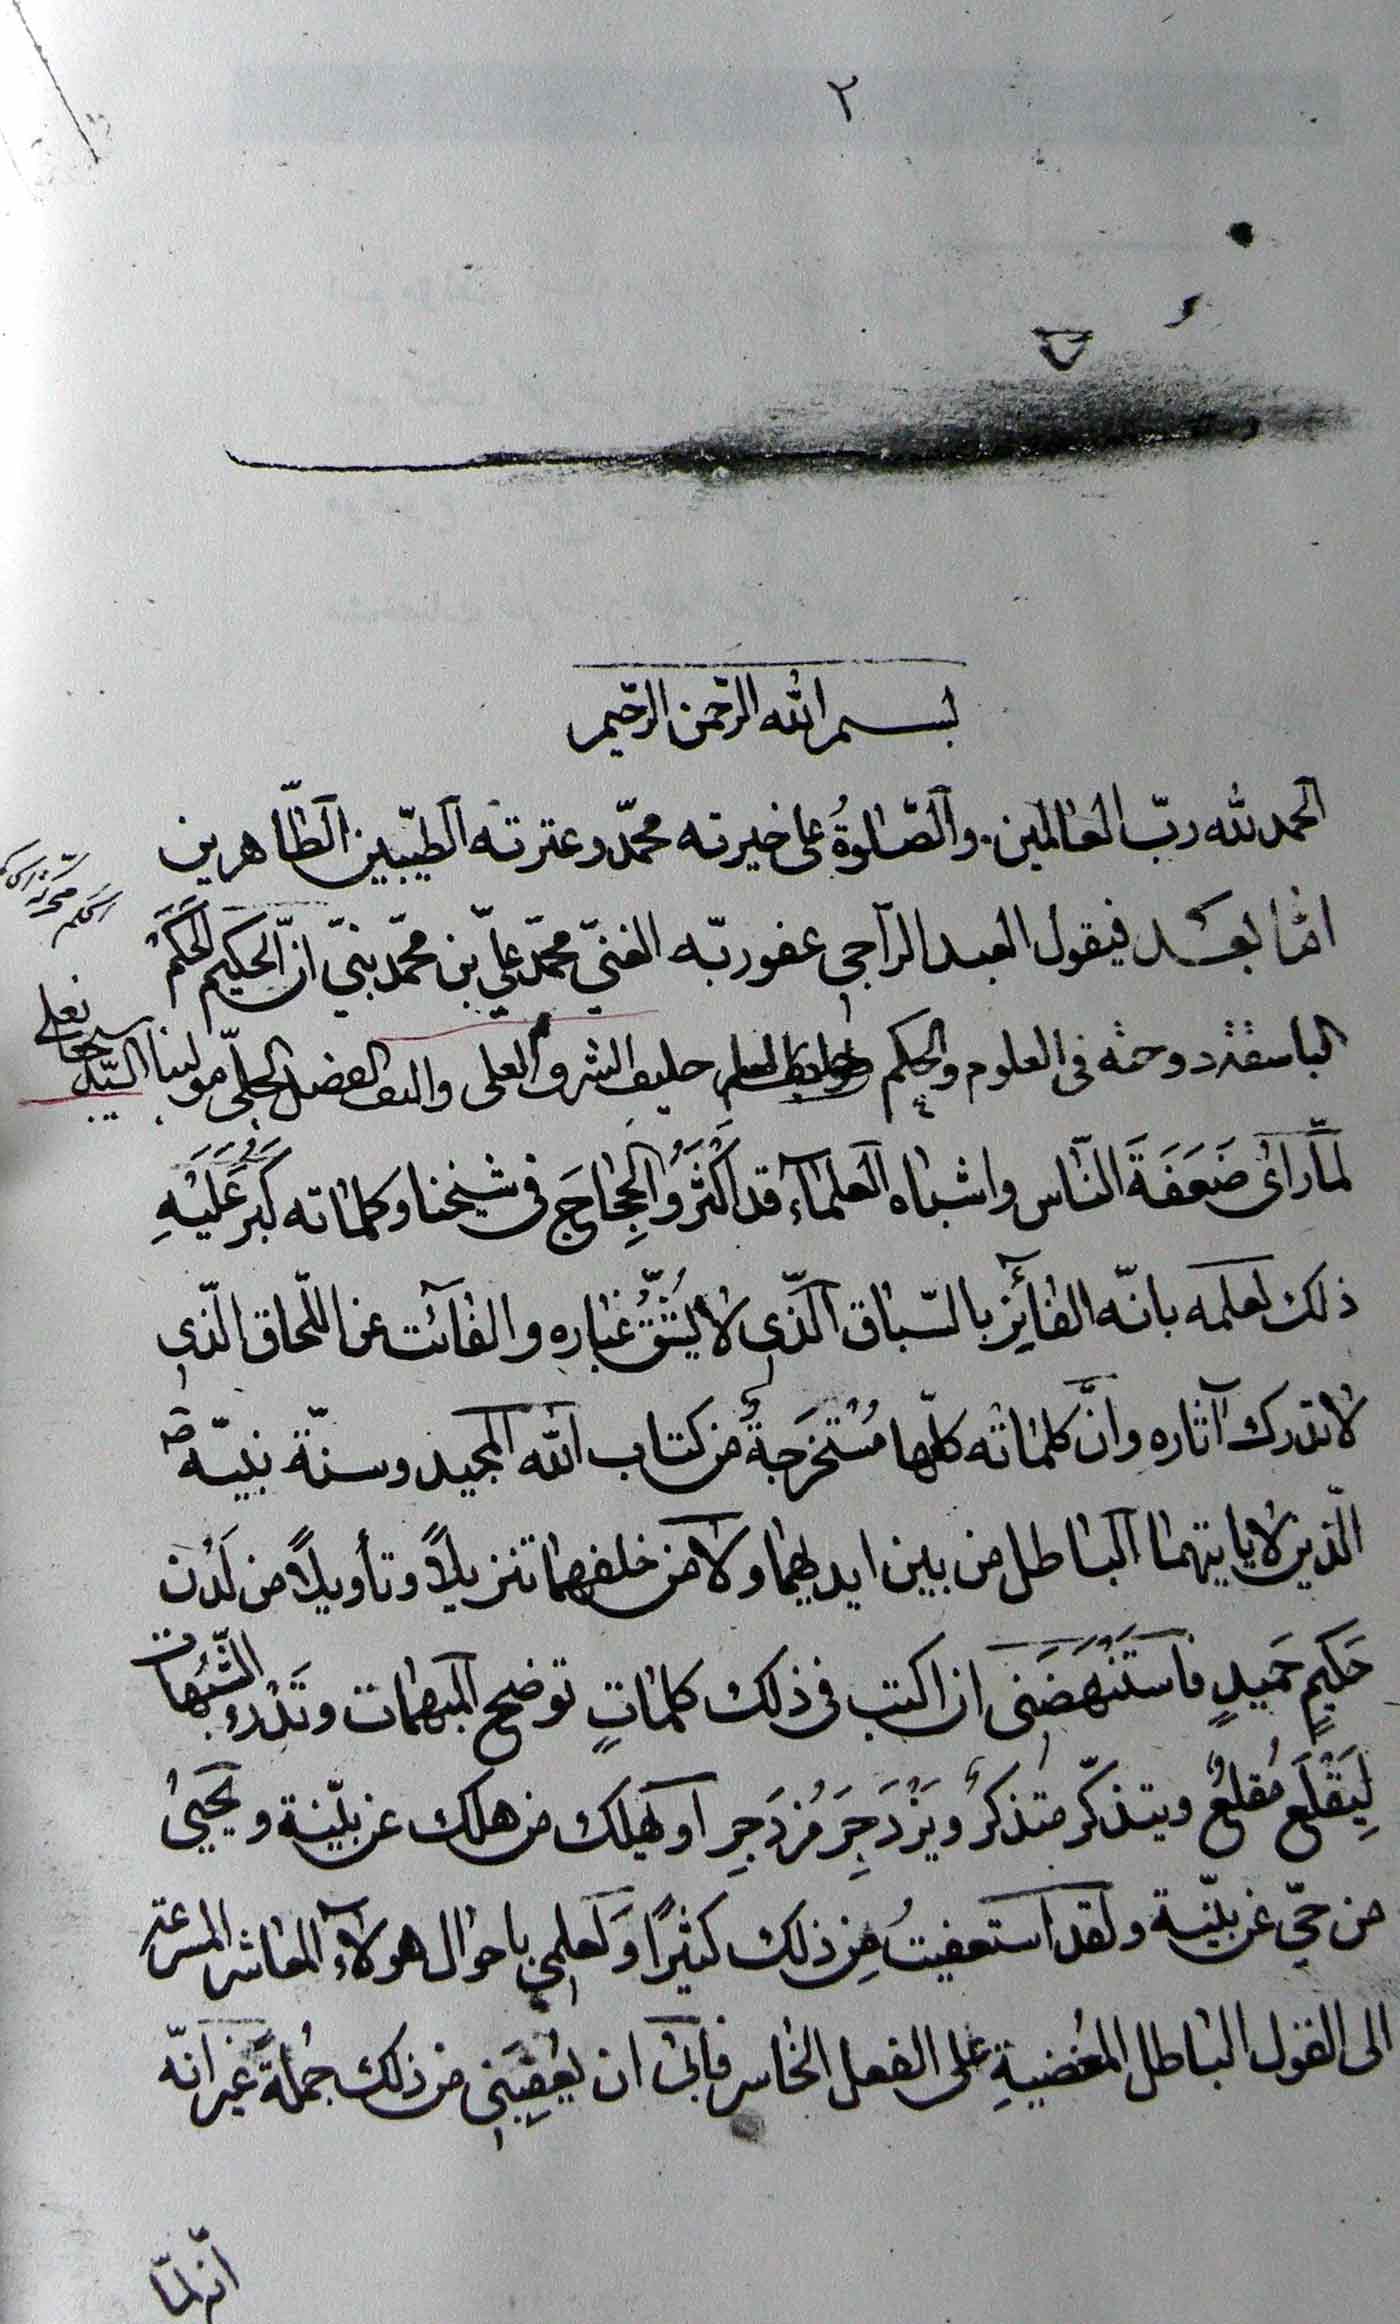 ٢
بسم الله الرّحمن الرّحيم
الحمد لله ربّ العالمين. والصّلوةُ على خيرته محمّد وعترته الطيّبين الطّاهرين
امّا بعد فيقول العبد الرّاجى عفو ربّه الغنىّ محمّد علىّ بن محمّد نبىّ انّ الحكيم الحَكَم
الباسقة دوحته فى العلوم والحِكم حليف الشرف العلى واليف الفضل الجلىّ مولينا السيّد
لمّا رأى ضَعَفَةَ النّاس واشباه العلماء قد اكْثَرُوا الحِجاجَ فى شيخنا وكلماته كَبُرَ عَلَيْهِ
ذلك لعلمه بانّه الفائِز بالسّباق الّذى لا يُشَقُّ غباره والفائت عن اللّحاق الّذى
لا تدرك آثاره وانَّ كلماته كلّها مُسْتَخرَجةٌ من كتاب الله المجيد وسنّة نبيّه ص
الّذين لا ياتيهما الباطل من بين ايديهما ولا من خلفهما تنزيلاً وتأويلاً من لَدُن
حَكيمٍ حَميدٍ فاستَنْهَضَنى ان اكتب فى ذلك كلماتٍ توضح المبهمات وتَدْرَء الشّبُهات
لِيَقْلَع مُقلعٌ ويتذكّر متذكرٌ ويَزْدَجِرَ مُزدَجِر او يهلك من هلك عن بيّنة ويحيىٰ
من حىّ عن بيّنة ولقد استعفيتُ مِن ذلك كثيرًا وَلعلمى باحوال هولاء المعاشر المسرعة
الى القول الباطل المغضيةِ على الفعل الخاسر فابىٰ ان يعْفِيَنى من ذلك جُملةً غير انّه
انّه لمّا